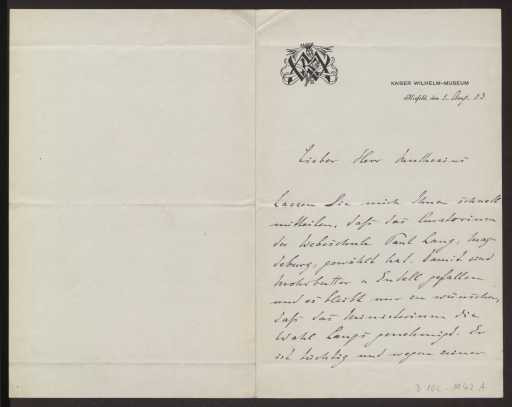 KAISER WILHELM-MUSEUM
Krefeld, den 2. Aug. 03.
Lieber Herr Muthesius
Lassen Sie mich Ihnen schnell
mitteilen, daß das Curatorium
der Webeschule Paul Lang, Mag
deburg, gewählt hat. Damit sind
Mohrbutter u Endell gefallen
und es bleibt nur zu wünschen,
daß das Ministerium die
Wahl Langs genehmigt. Er
ist tüchtig und wegen seiner